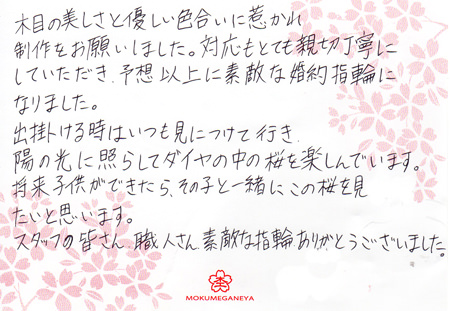 木目の美しさと優しい色合いに惹かれ
制作をお願いしました。対応もとても親切丁寧に
していただき、予想以上に素敵な婚約指輪に
なりました。
出掛ける時はいつも見につけて行き、
陽の光に照らしてダイヤの中の桜を楽しんでいます。
将来子供ができたら、その子と一緒にこの桜を見
たいと思います。
スタッフの皆さん、職人さん、素敵な指輪ありがとうございました。
MOKUMEGANEYA